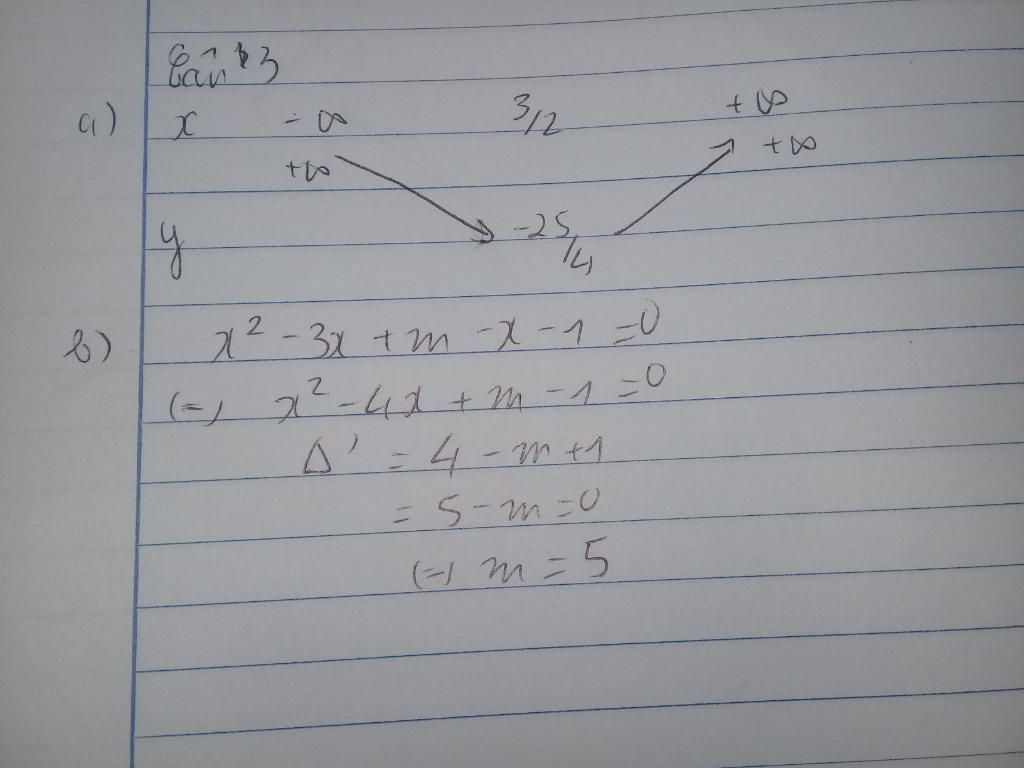 Câu 3
a) x -∞ 3/2 +∞
+∞ +∞
y -25/4
b) x² - 3x + m - x - 1 = 0
(=) x² - 4x + m - 1 = 0
Δ' = 4 - m + 1
= 5 - m = 0
(=) m = 5